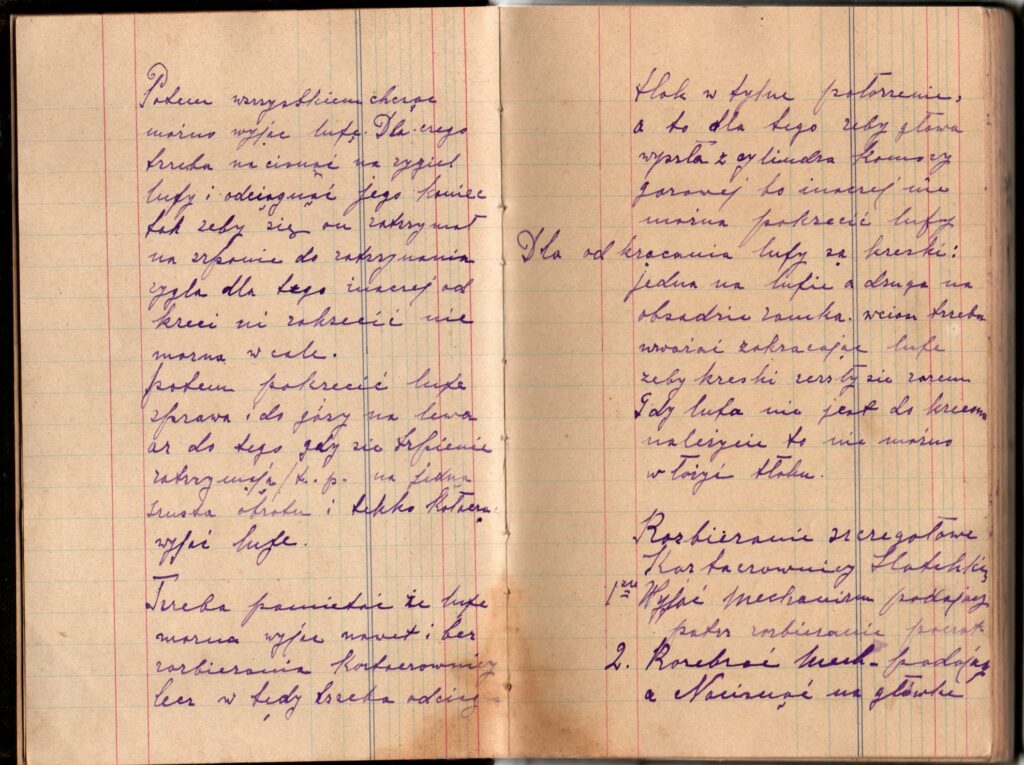 Potem wszystkiem chcąc
można wyjąc lufę. Dla czego
trzeba nacisnąć na rygiel
lufy i odciągnąć jego koniec
tak żeby się on zatrzymał
na do zatrzymania
rygla dla tego inaczej od
kręci ni zakręcić nie
można w cale.
potem pokręcić lufę
zprawa i do góry na lewa
aż do tego gdy się trpienie
zatrzymają/t. p. na jedną
szustą obrotu i lekko
wyjąć lufę.
Trzeba pamiętać że lufę
można wyjąc nawet i bez
rozbierania Kartaczownicy
lecz w tędy trzeba odciągn
tłok w tylne położenie,
a to dla tego żeby głowa
wyszła z cylindra Komory
gazowej bo inaczej nie
można pokręcić lufy
Dla odkracania lufy są kreski:
jedna na lufie a druga na
obsadzie zamka. wciąż trzeba
uważać zakracając lufę
żeby kreski zeszły się razem
Gdy lufa nie jest do
należycie to nie można
włożyć tłoku.
Rozbieranie szczegołowe
Kartaczownicy
1sze Wyjąć mechanizm podający
patrz rozbieranie
2. Rozebrać mech- podając
a Nacisnąć na główkę